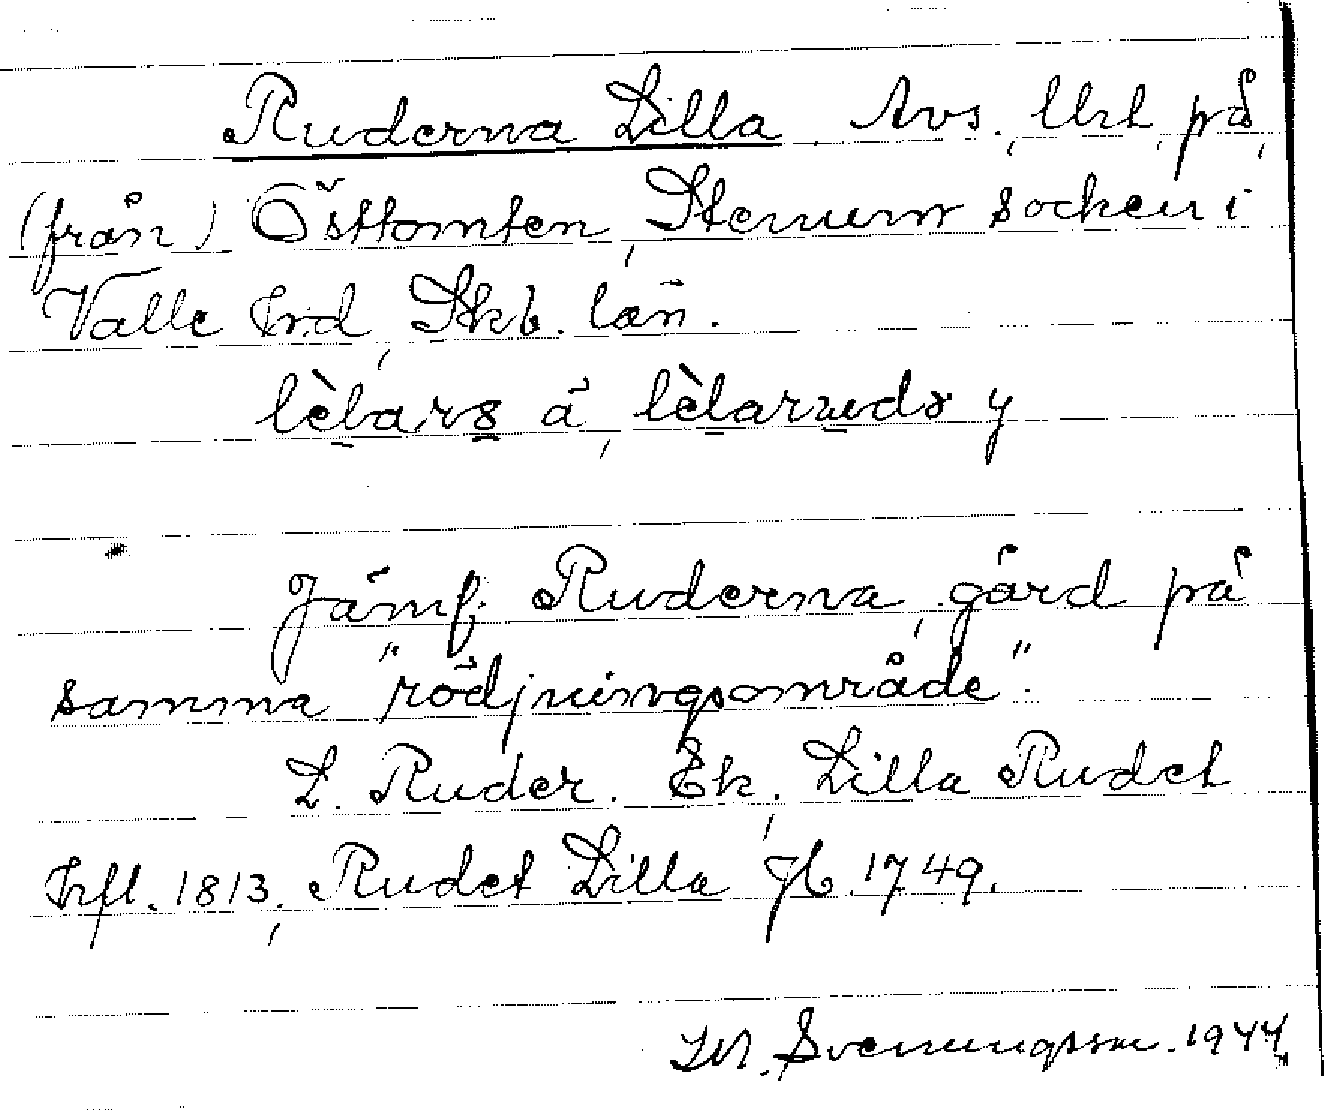 Ruderna Lilla. Avs., Urt, på,
(från) Östtomten, Stenum socken i
Valle hrd, Skb. län.
lèlars ä, lèlaruds y
Jämf. Ruderna, gård på
samma "rödjningsområde".
L. Ruder. Ek., Lilla Rudet
Hfl. 1813, Rudet Lilla Jb 1749.
Svenungsson. 1944